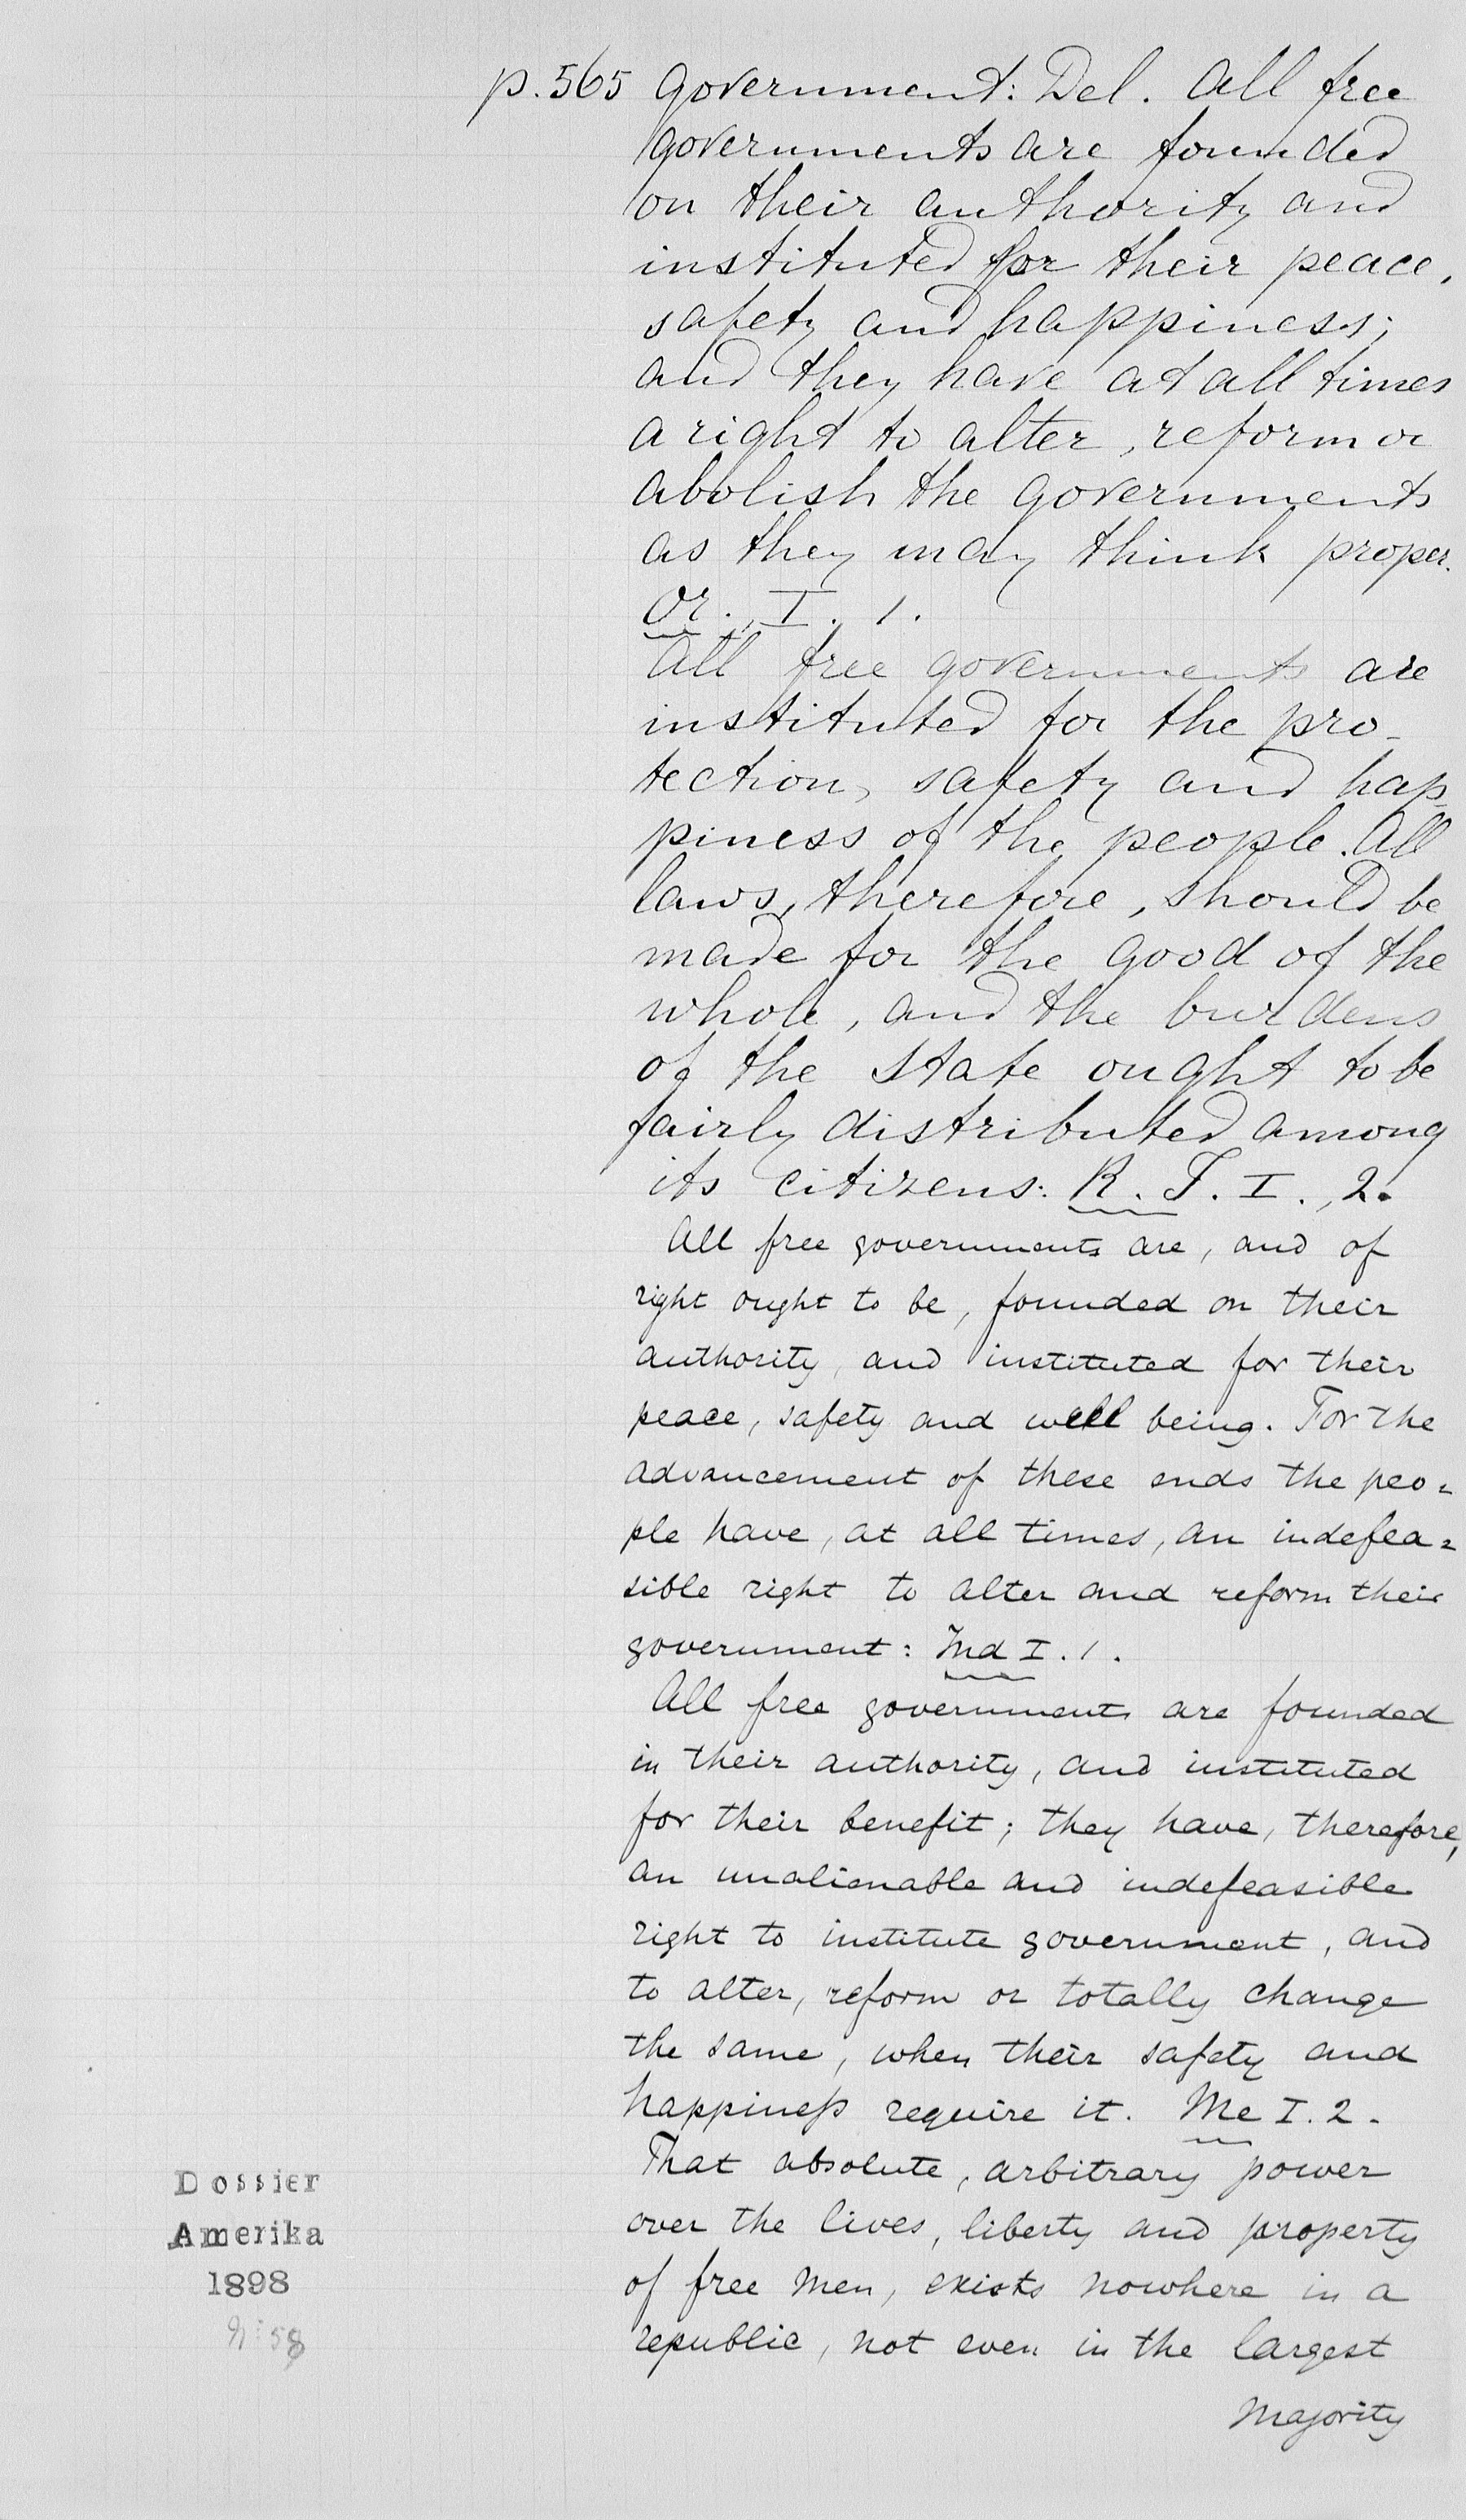 p. 565 Government: Del. All free
governments are founded
on their authority and
instituted for their peace,
safety and happiness;
and they have at all times
a right to alter, reform or
abolish the governments
as they may think proper.
Or., I. 1.
All free governments are
instituted for the pro-
tection, safety and hap-
piness of the people. All
laws, therefore, should be
made for the good of the
whole, and the burdens
of the state ought to be
fairly distributed among
its citizens: R. I. I., 2.
All free governments are, and of
right ought to be, founded on their
authority, and instituted for their
peace, safety and well being. For the
advancement of these ends the peo=
ple have, at all times, an indefea=
sible right to alter and reform their
government: Ind I. 1.
All free governments are founded
in their authority, and instituted
for their benefit; they have, therefore,
an unalienable and indefeasible
right to institute government, and
to alter, reform or totally change
the same, when their safety and
happiness require it. Me I. 2.
That absolute, arbitrary power
over the lives, liberty and property
of free men, exists nowhere in a
republic, not even in the largest
majority
Dossier
Amerika
1898